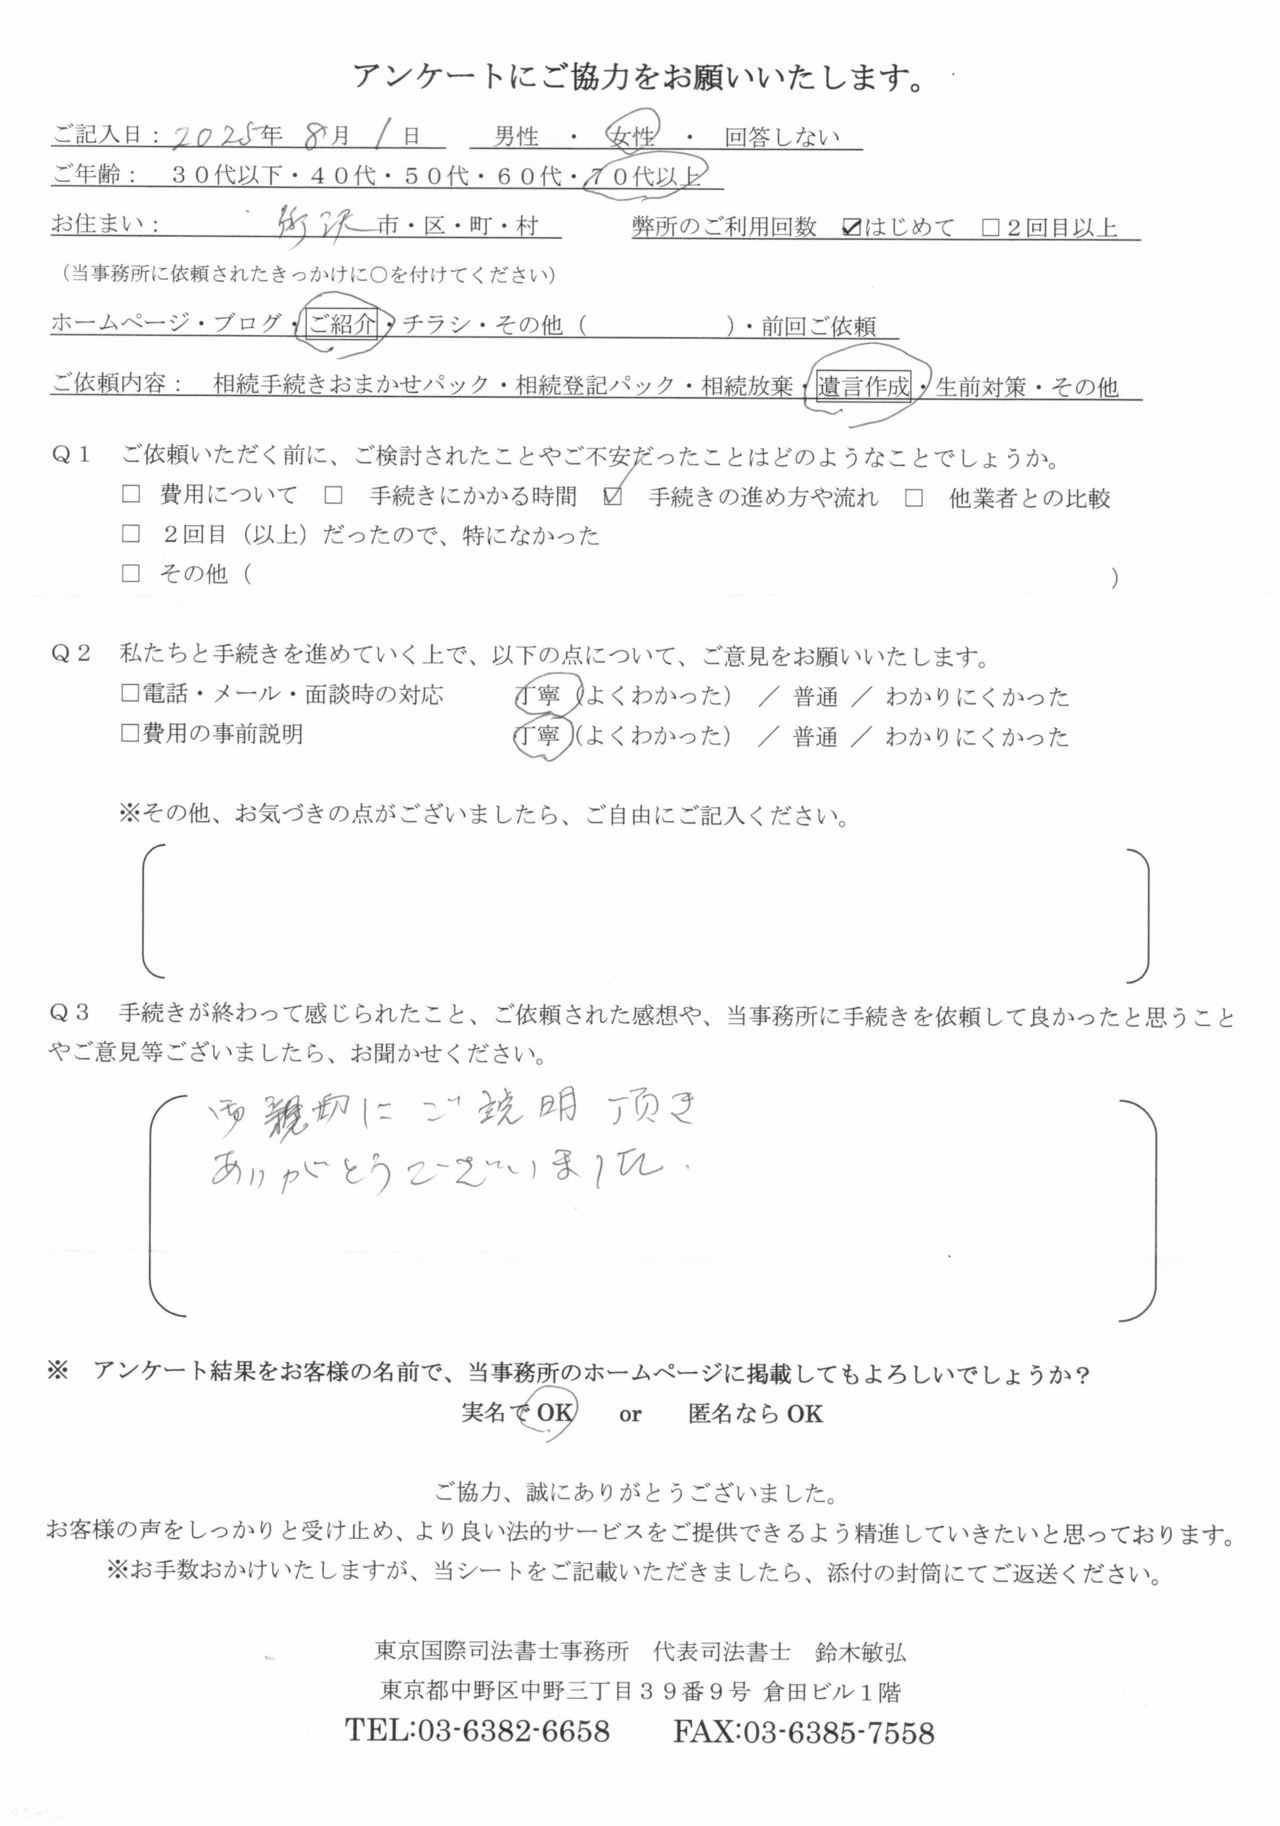 アンケートにご協力をお願いいたします。
ご記入日：2025年 8月 1日　男性 ・ 女性 ・ 回答しない
ご年齢： ３０代以下・４０代・５０代・６０代・７０代以上
お住まい： 市・区・町・村　弊所のご利用回数 ☑はじめて □２回目以上
（当事務所に依頼されたきっかけに○を付けてください）
ホームページ・ブログ・ご紹介・チラシ・その他（ ）・前回ご依頼
ご依頼内容： 相続手続きおまかせパック・相続登記パック・相続放棄・遺言作成・生前対策・その他
Ｑ１ ご依頼いただく前に、ご検討されたことやご不安だったことはどのようなことでしょうか。
□ 費用について □ 手続きにかかる時間 ☑ 手続きの進め方や流れ □ 他業者との比較
□ ２回目（以上）だったので、特になかった
□ その他（ ）
Ｑ２ 私たちと手続きを進めていく上で、以下の点について、ご意見をお願いいたします。
□電話・メール・面談時の対応　丁寧（よくわかった） ／ 普通 ／ わかりにくかった
□費用の事前説明　丁寧（よくわかった） ／ 普通 ／ わかりにくかった
※その他、お気づきの点がございましたら、ご自由にご記入ください。
Ｑ３ 手続きが終わって感じられたこと、ご依頼された感想や、当事務所に手続きを依頼して良かったと思うこと
やご意見等ございましたら、お聞かせください。
御親切にご説明頂き
ありがとうございました.
※ アンケート結果をお客様の名前で、当事務所のホームページに掲載してもよろしいでしょうか？
実名で OK or 匿名なら OK
ご協力、誠にありがとうございました。
お客様の声をしっかりと受け止め、より良い法的サービスをご提供できるよう精進していきたいと思っております。
※お手数おかけいたしますが、当シートをご記載いただきましたら、添付の封筒にてご返送ください。
東京国際司法書士事務所 代表司法書士 鈴木敏弘
東京都中野区中野三丁目３９番９号 倉田ビル１階
TEL:03-6382-6658 FAX:03-6385-7558